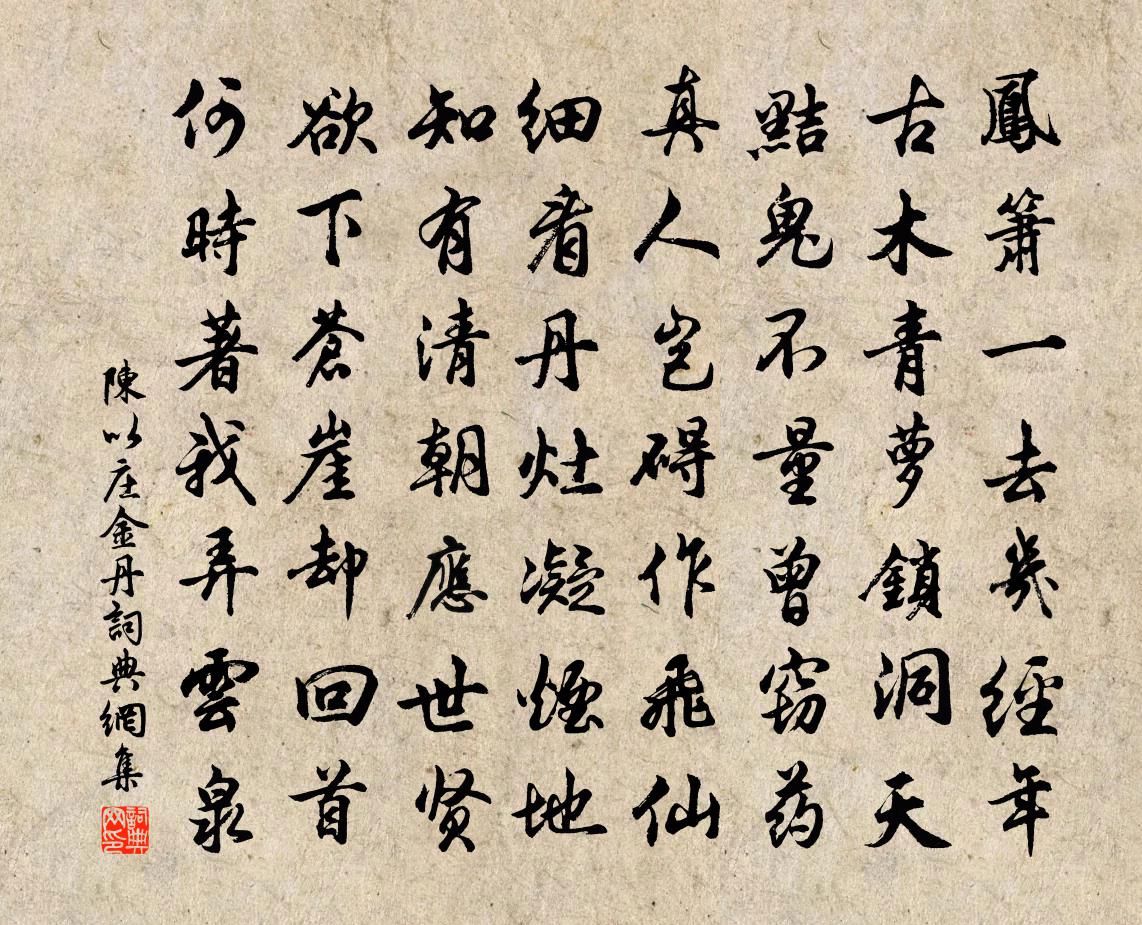 鳳簫一去幾經年
古木青蘿鎖洞天
黠鬼不量曾窃药
真人岂碍作飛仙
细看丹灶凝煙地
知有清朝應世贤
欲下蒼崖却回首
何時著我弄雲泉
陳以庄金丹詞典網集
詞典网印